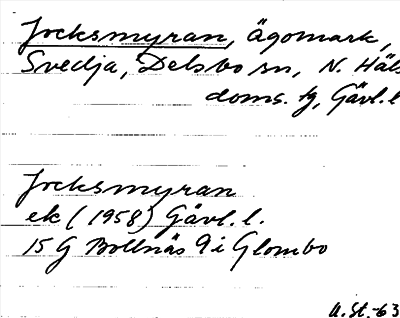 Jocksmyran, Ägomark,
Svedja, Delsbo sn, N. Häls
doms. tg, Gävl. l
Jocksmyran
ek (1958) Gävl. l.
15 G Bollnäs 9 i Glombo
U. St. -63